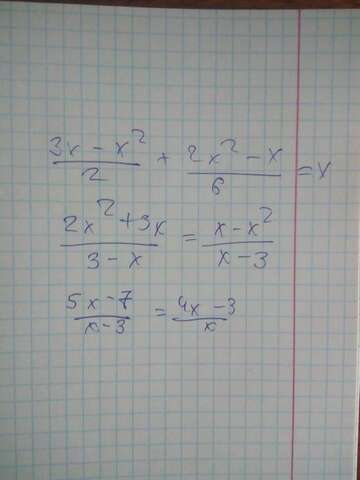 (3x - x²)/2 + (2x² - x)/6 = x
(2x² + 3x)/(3 - x) = (x - x²)/(x - 3)
(5x - 7)/(x - 3) = (4x - 3)/x